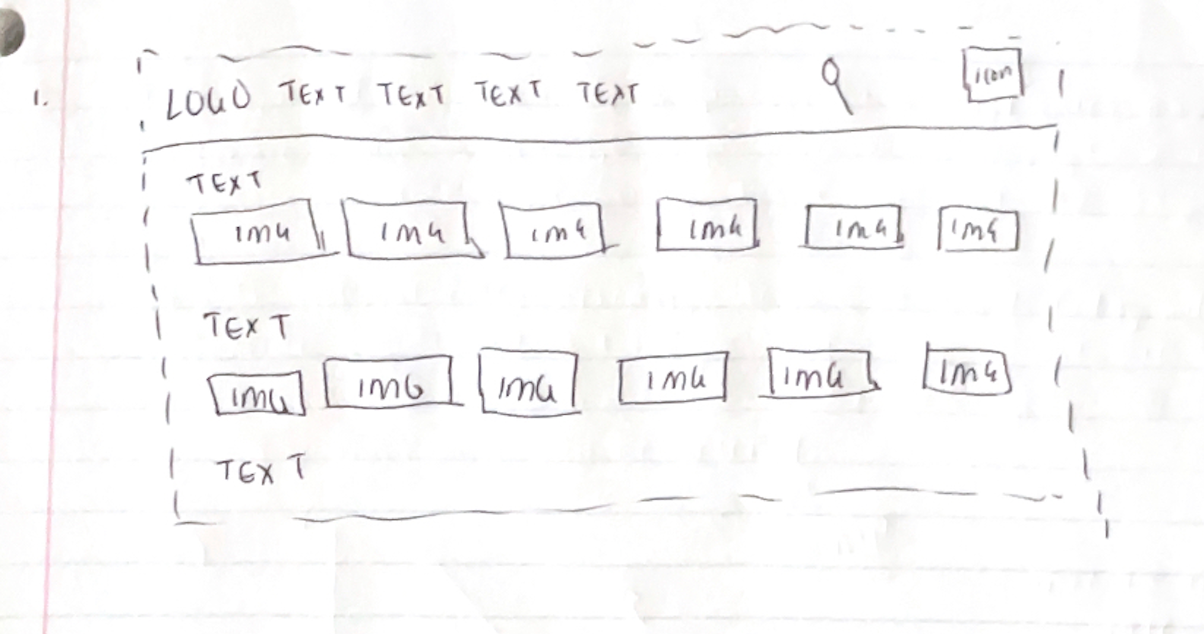 1.
LOGO TEXT TEXT TEXT TEXT icon
TEXT
IMG IMG IMG IMG IMG IMG
TEXT
IMG IMG IMG IMG IMG IMG
TEXT